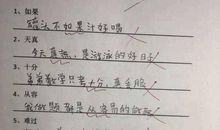 1、如果
罐头不如果汁好喝
2、天真
今天真热,是游泳的好日子
3、十分
弟弟数学只考十分,真丢脸
4、从容
我做题都是从容易的做起
5、难过